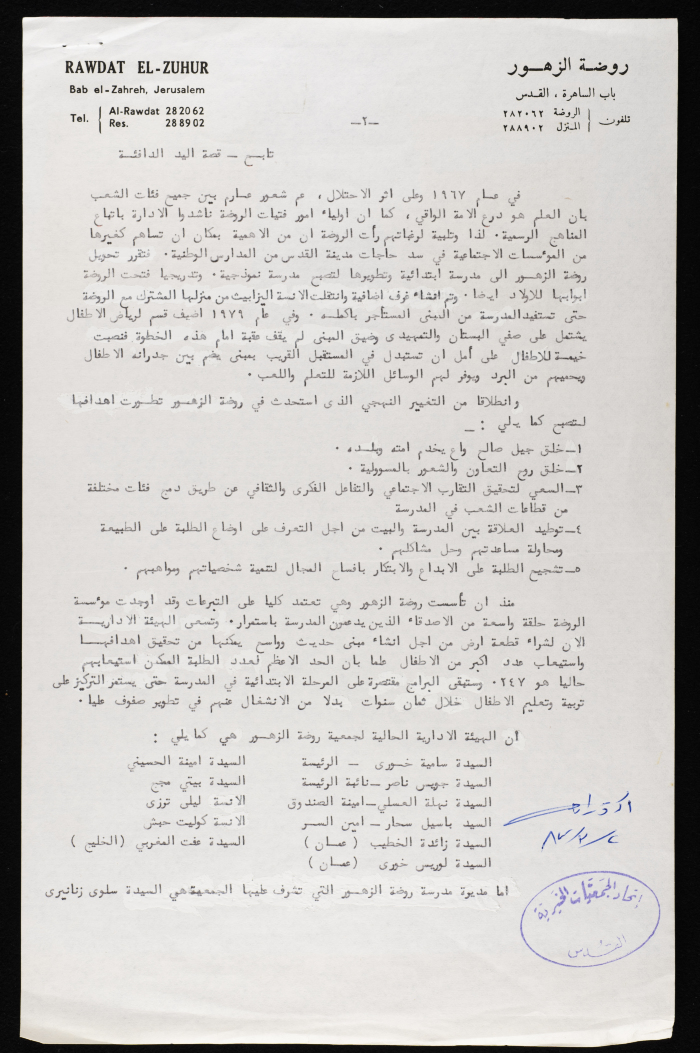 RAWDAT EL-ZUHUR
Bab el-Zahreh, Jerusalem
Tel. Al-Rawdat 282062
Res. 288902
روضة الزهور
باب الساهرة ، القدس
تلفون الروضة ٢٨٢٠٦٢
المنزل ٢٨٨٩٠٢
-٢-
تابع - قصة اليد الدافئة
في عام ١٩٦٧ وعلى اثر الاحتلال، عم شعور عارم بين جميع فئات الشعب
بان العلم هو درع الامة الواقي ، كما ان اولياء امور فتيات الروضة ناشدوا الادارة باتباع
المناهج الرسمية. لذا وتلبية لرغباتهم رأت الروضة ان من الاهمية بمكان ان تساهم كغيرها
من المؤسسات الاجتماعية في سد حاجات مدينة القدس من المدارس الوطنية. فتقرر تحويل
روضة الزهور الى مدرسة ابتدائية وتطويرها لتصبح مدرسة نموذجية. وتدريجيا فتحت الروضة
ابوابها للاولاد ايضا. وتم انشاء غرف اضافية وانتقلت الانسة اليزابيث من منزلها المشترك مع الروضة
حتى تستفيد المدرسة من المبنى المستأجر باكمله. وفي عام ١٩٧٩ اضيف قسم لرياض الاطفال
يشتمل على صفي البستان والتمهيدى وضيق المبنى لم يقف عقبة امام هذه الخطوة فنصبت
خيمة للاطفال على أمل ان تستبدل في المستقبل القريب بمبنى يضم بين جدرانه الاطفال
ويحميهم من البرد ويوفر لهم الوسائل اللازمة للتعلم واللعب.
وانطلاقا من التغيير النهجي الذى استحدث في روضة الزهور تطورت اهدافها
لتصبح كما يلي : -
١- خلق جيل صالح واع يخدم امته وبلده .
٢- خلق روح التعاون والشعور بالمسوولية .
٣- السعي لتحقيق التقارب الاجتماعي والتفاعل الفكرى والثقافي عن طريق دمج فئات مختلفة
من قطاعات الشعب في المدرسة
٤- توطيد العلاقة بين المدرسة والبيت من اجل التعرف على اوضاع الطلبة على الطبيعة
ومحاولة مساعدتهم وحل مشاكلهم .
٥- تشجيع الطلبة على الابداع والابتكار بافساح المجال لتنمية شخصياتهم ومواهبهم .
منذ ان تأسست روضة الزهور وهي تعتمد كليا على التبرعات وقد اوجدت مؤسسة
الروضة حلقة واسعة من الاصدقاء الذين يدعمون المدرسة باستمرار. وتسعى الهيئة الادارية
الان لشراء قطعة ارض من اجل انشاء مبنى حديث وواسع يمكنها من تحقيق اهدافها
واستيعاب عدد اكبر من الاطفال علما بان الحد الاعظم لعدد الطلبة الممكن استيعابهم
حاليا هو ٢٤٧. وستبقى البرامج مقتصرة على المرحلة الابتدائية في المدرسة حتى يستمر التركيز على
تربية وتعليم الاطفال خلال ثمان سنوات بدلا من الانشغال عنهم في تطوير صفوف عليا.
ان الهيئة الادارية الحالية لجمعية روضة الزهور هي كما يلي :
السيدة سامية خورى - الرئيسة السيدة امينة الحسيني
السيدة جويس ناصر - نائبة الرئيسة السيدة بيتي مجج
السيدة نهلة العسلي - امينة الصندوق الانسة ليلى ترزى
السيد باسيل سحار - امين السر الانسة كوليت حبش
السيدة زائدة الخطيب (عمان) السيدة عفت المغربي (الخليج)
السيدة لوريس خورى (عمان)
اما مديرة مدرسة روضة الزهور التي تشرف عليها الجمعية هي السيدة سلوى زنانيرى
اتحاد الجمعيات الخيرية
القدس